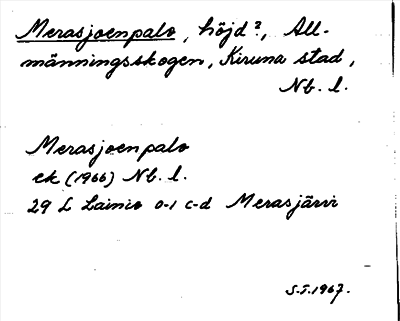 Merasjoenpalo, höjd?, All-
männingsskogen, Kiruna stad,
Nb. l.
Merasjoenpalo
ek (1966) Nb. l.
29 L Lainio 0-1 c-d Merasjärvi
S.T. 1967.